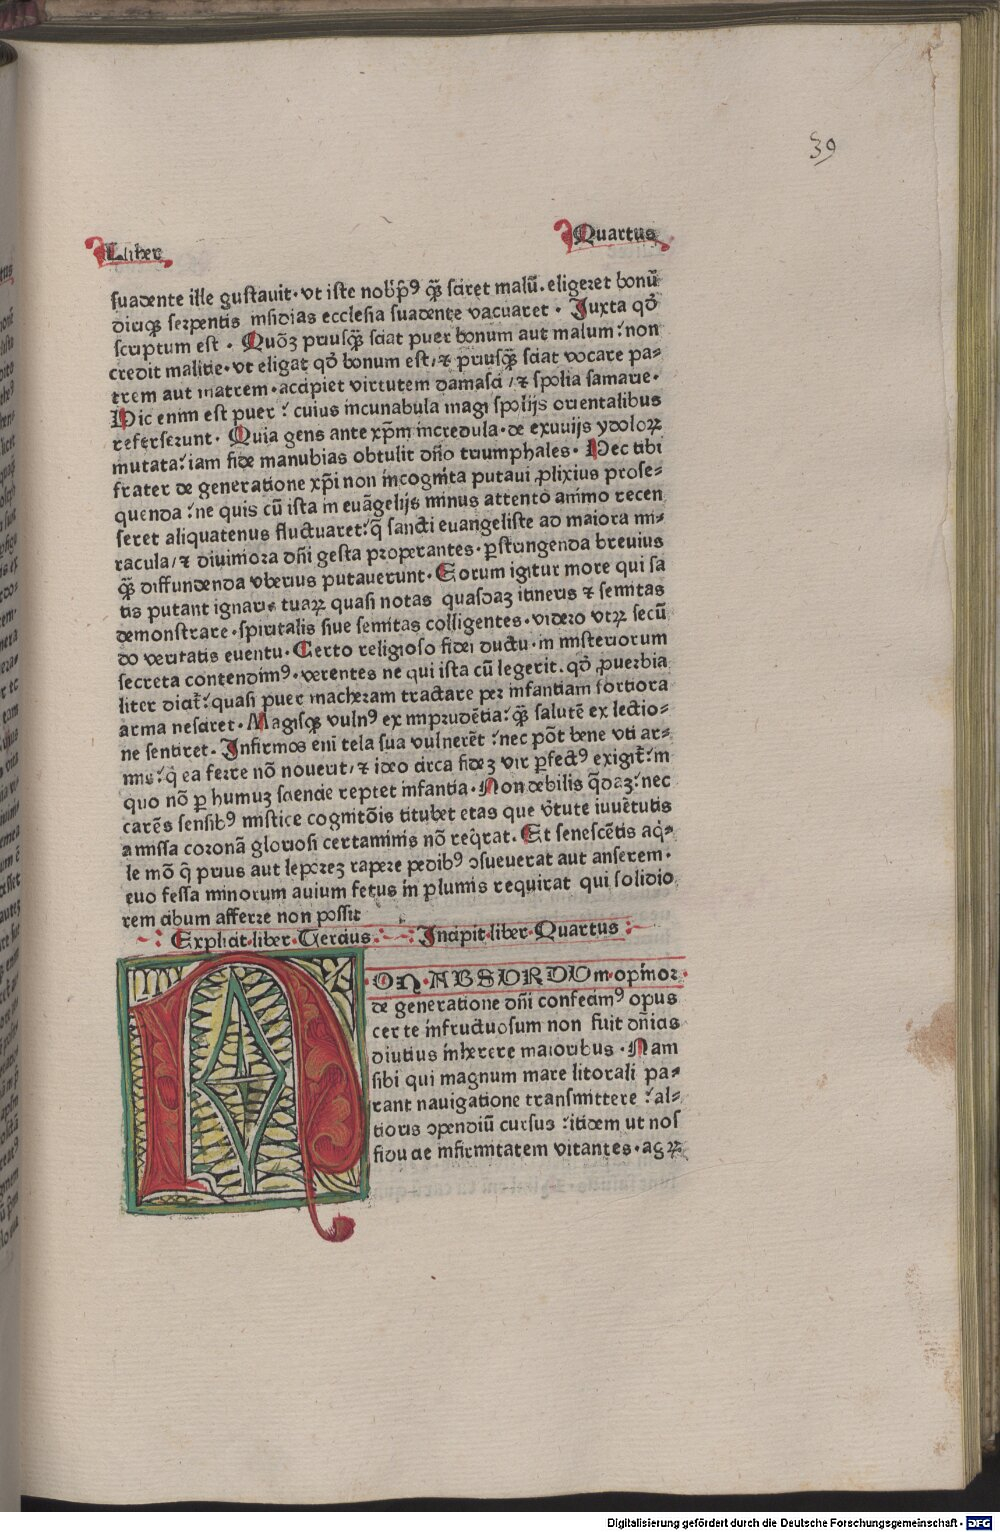 39
Liber Quartus
suadente ille gustavit · vt iste nob̃ p̃ꝰ qᷓꝫ sciret malũ . eligeret bonũ
diuqꝫ serpentis insidias ecclesia suadente vacuaret · Juxta qð
scriptum est · Quõꝫ priusqᷓꝫ sciat puer bonum aut malum : non
credit malitie · vt eligat qð bonum est / ⁊ priusqᷓꝫ sciat vocare pa⸗
trem aut matrem · accipiet virtutem damasci / ⁊ spolia samarie ·
Hic enim est puer : cuius incunabula magi spolijs orientalibus
referserunt · Quia gens ante xp̃m incredula · de exuuijs ydoloꝝ
mutata : iam fide manubias obtulit dño triumphales · Hec tibi
frater de generatione xp̃i non incognita putaui ꝓlixius prose⸗
quenda : ne quis cũ ista in euãgelijs minus attento animo recen
seret aliquatenus fluctuaret : q̃ sancti euangeliste ad maiora mi⸗
racula / ⁊ diuiniora dñi gesta properantes · ꝑstringenda breuius
qᷓꝫ diffundenda vberius putauerunt · Eorum igitur more qui sa
tis putant ignaris tuaꝝ quasi notas quasdaꝫ itineris ⁊ semitas
demonstrare · spiritalis siue semitas colligentes · videro vtꝝ secũ
do veritatis euentu · Certo religioso fidei ductu · in misteriorum
secreta contendimꝰ · verentes ne qui ista cũ legerit · qð ꝓuerbia
liter dicit᷑ : quasi puer macheram tractare per infantiam fortiora
arma nesciret · Magisqꝫ vulnꝰ ex imprudẽtia : qᷓꝫ salutẽ ex lectio⸗
ne sentiret · Infirmos eni tela sua vulnerẽt : nec põt bene vti ar⸗
mis : q̃ ea ferre nõ nouerit / ⁊ ideo circa fideꝫ vir ꝑfectꝰ exigit᷑ : in
quo nõ ꝑ humuꝫ sciencie reptet infantia · Non debilis q̃daꝫ : nec
carẽs sensibꝰ mistice cognitõis titubet etas que v̓tute iuuẽtutis
amissa coronã gloriosi certaminis nõ req̓rat. Et senescẽtis aq̓⸗
le mõ q̃ prius aut leporeꝫ rapere pedibꝰ ↄsueuerat aut anserem ·
euo fessa minorum auium fetus in plumis requirat qui solidio
rem cibum afferre non possit
Explicit · liber · Tercius : Incipit · liber · Quartus :
NON · ABSVRDVm · opinor ·
de generatione dñi confecimꝰ opus
certe infructuosum non fuit dñicis
diutius inherere maioribus · Nam
sibi qui magnum mare litorali pa⸗
rant nauigatione transmittere : al⸗
tioris ↄpendiũ cursus : itidem ut nos
fidu ae infirmitatem vitantes · agꝝ
Digitalisierung gefördert durch die Deutsche Forschungsgemeinschaft - DFG